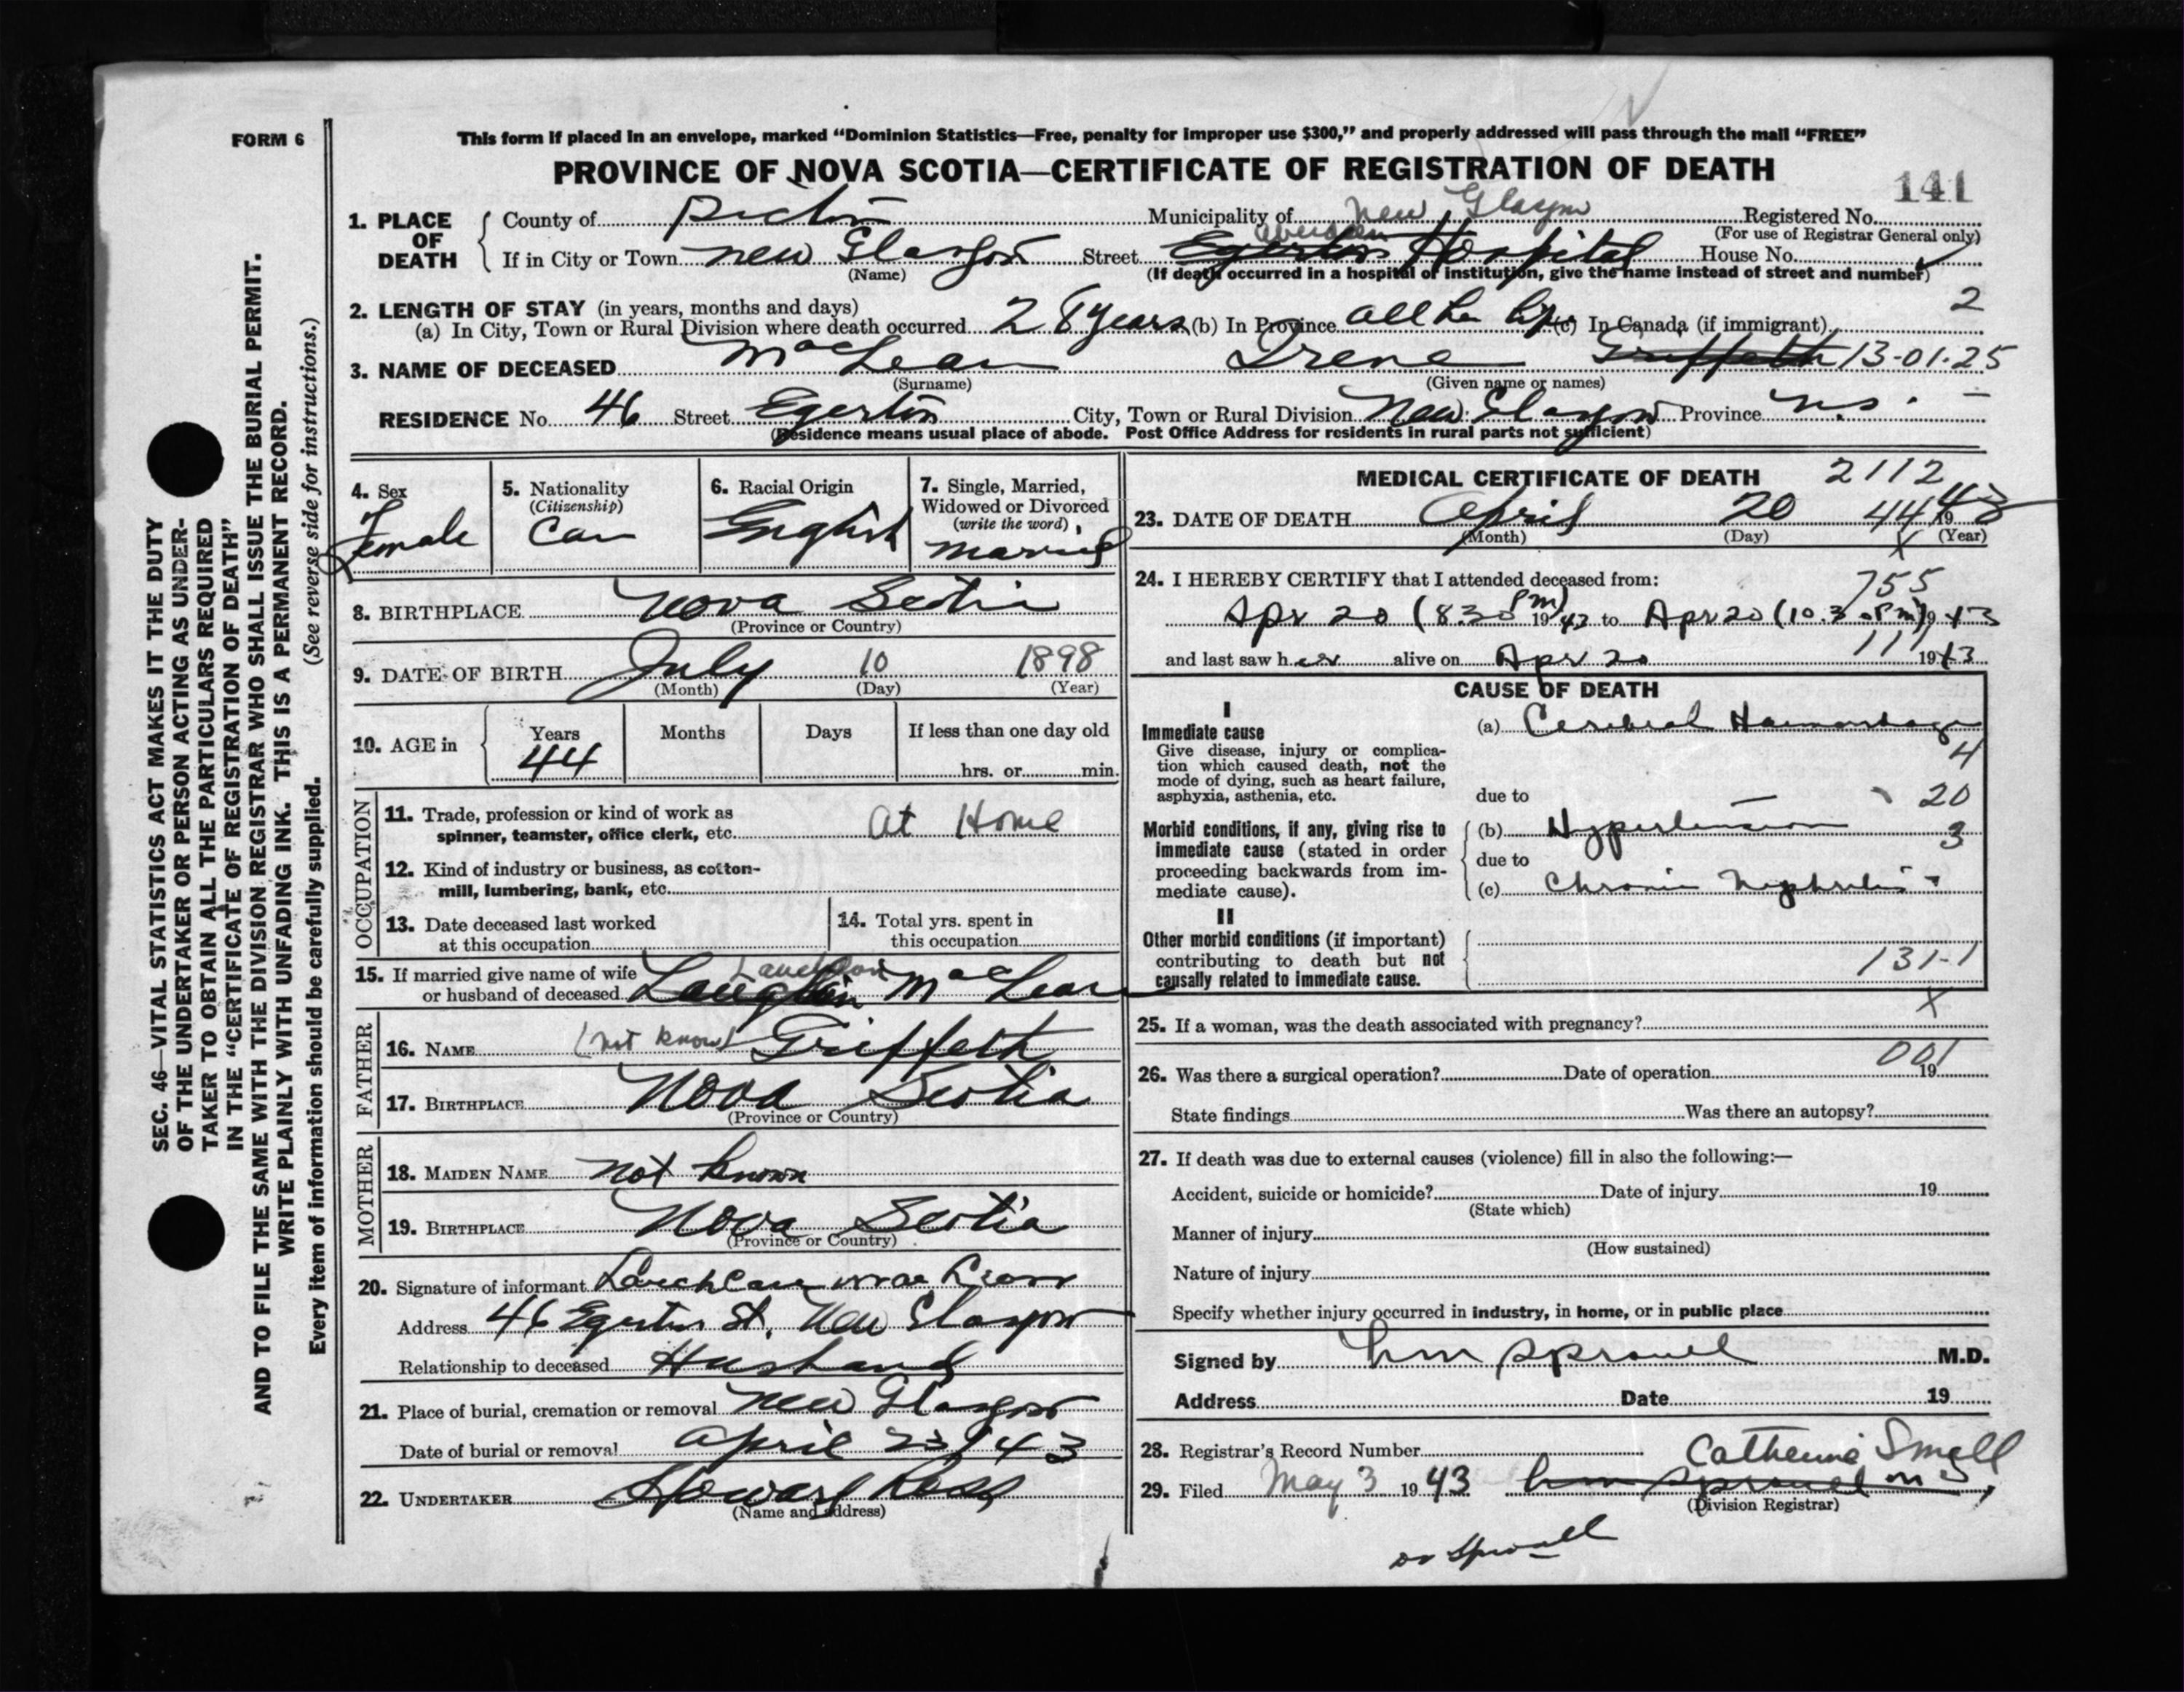 FORM 6
This form if placed in an envelope, marked "Dominion Statistics—Free, penalty for improper use $300," and properly addressed will pass through the mail "FREE"
PROVINCE OF NOVA SCOTIA—CERTIFICATE OF REGISTRATION OF DEATH
141
1. PLACE OF DEATH County of Pictou Municipality of New Glasgow Registered No.
(For use of Registrar General only)
Aberdeen
If in City or Town New Glasgow Street Egerton Hospital House No.
(Name) (If death occurred in a hospital or institution, give the name instead of street and number)
2. LENGTH OF STAY (in years, months and days) 2
(a) In City, Town or Rural Division where death occurred 28 years (b) In Province all her life (c) In Canada (if immigrant)
3. NAME OF DECEASED MacLean Irene Griffeth 13-01-25
(Surname) (Given name or names)
RESIDENCE No. 46 Street Egerton City, Town or Rural Division New Glasgow Province N.S.
(Residence means usual place of abode. Post Office Address for residents in rural parts not sufficient)
4. Sex Female
5. Nationality (Citizenship) Can
6. Racial Origin English
7. Single, Married, Widowed or Divorced (write the word) Married
8. BIRTHPLACE Nova Scotia
(Province or Country)
9. DATE OF BIRTH July 10 1898
(Month) (Day) (Year)
10. AGE in Years 44 Months Days If less than one day old
hrs. or min.
OCCUPATION
11. Trade, profession or kind of work as
spinner, teamster, office clerk, etc. At Home
12. Kind of industry or business, as cotton-
mill, lumbering, bank, etc.
13. Date deceased last worked
at this occupation
14. Total yrs. spent in
this occupation
15. If married give name of wife
or husband of deceased MacLean
FATHER
16. NAME (not know) Griffeth
17. BIRTHPLACE Nova Scotia
(Province or Country)
MOTHER
18. MAIDEN NAME not known
19. BIRTHPLACE Nova Scotia
(Province or Country)
20. Signature of informant
Address 46 Egerton St. New Glasgow
Relationship to deceased Husband
21. Place of burial, cremation or removal New Glasgow
Date of burial or removal April 23/43
22. UNDERTAKER Howard Ross
(Name and address)
MEDICAL CERTIFICATE OF DEATH 2112
23. DATE OF DEATH April 20 44 1943
(Month) (Day) (Year)
X
24. I HEREBY CERTIFY that I attended deceased from: 755
Apr 20 (8.30 pm) 1943 to Apr 20 (10.30 Pm) 1943
111
and last saw her alive on Apr 20 1943
CAUSE OF DEATH
I
Immediate cause (a) Cerebral Haemorrhage
Give disease, injury or complica-
tion which caused death, not the 4
mode of dying, such as heart failure,
asphyxia, asthenia, etc. due to 20
Morbid conditions, if any, giving rise to (b) Hypertension 3
immediate cause (stated in order
proceeding backwards from im- due to
mediate cause). (c) Chronic Nephritis
II
Other morbid conditions (if important)
contributing to death but not
causally related to immediate cause. 131-1
X
25. If a woman, was the death associated with pregnancy?
001
26. Was there a surgical operation? Date of operation 19
State findings Was there an autopsy?
27. If death was due to external causes (violence) fill in also the following:—
Accident, suicide or homicide? Date of injury 19
(State which)
Manner of injury
(How sustained)
Nature of injury
Specify whether injury occurred in industry, in home, or in public place
Signed by Sprouell M.D.
Address Date 19
28. Registrar's Record Number Catherine Smell
29. Filed May 3 1943
(Division Registrar)
SEC. 46—VITAL STATISTICS ACT MAKES IT THE DUTY
OF THE UNDERTAKER OR PERSON ACTING AS UNDER-
TAKER TO OBTAIN ALL THE PARTICULARS REQUIRED
IN THE "CERTIFICATE OF REGISTRATION OF DEATH"
AND TO FILE THE SAME WITH THE DIVISION REGISTRAR WHO SHALL ISSUE THE BURIAL PERMIT.
WRITE PLAINLY WITH UNFADING INK. THIS IS A PERMANENT RECORD.
Every item of information should be carefully supplied. (See reverse side for instructions.)